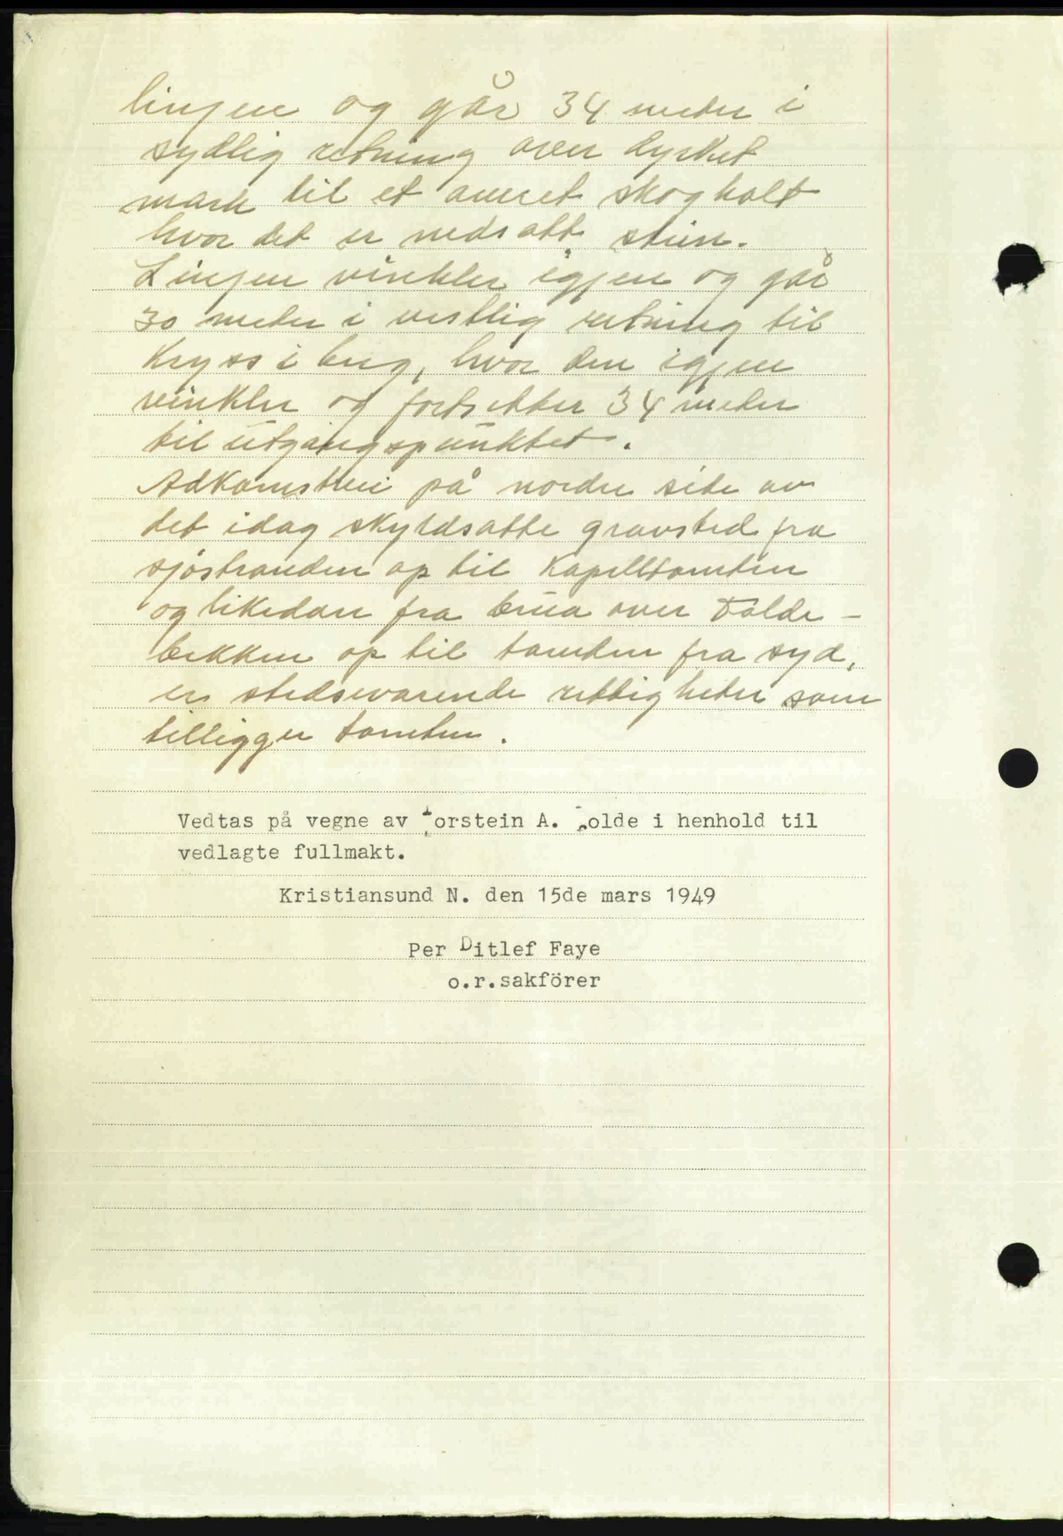 linjen og går 34 meter i
sydlig retning over dyrket
mark til et annet skogholt
hvor det er nedsatt stein.
Linjen vinkler igjen og går
30 meter i vestlig retning til
kryss i berg, hvor den igjen
vinkler og fortsetter 34 meter
til utgangspunktet.
Adkomstvei på nordre side av
det idag skyldsatte gravsted fra
sjøstranden op til Kapelltomten
og likedan fra brua over Tolde-
bekken op til tomten fra syd,
er stedsevarende rettigheter som
tilligger tomten.
Vedtas på vegne av Torstein A. Tolde i henhold til
vedlagte fullmakt.
Kristiansund N. den 15de mars 1949
Per Ditlef Faye
o.r.sakförer